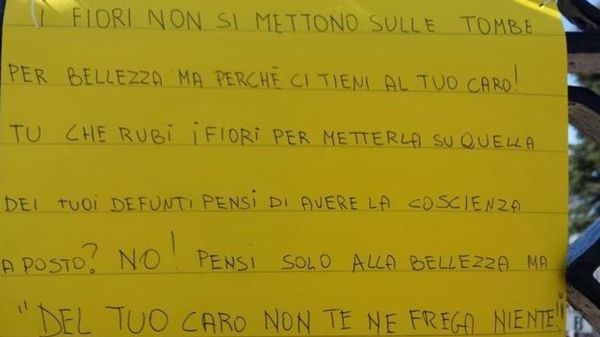 i FIORI NON SI METTONO SULLE TOMBE
PER BELLEZZA MA PERCHÈ CI TIENI AL TUO CARO!
TU CHE RUBI i FIORI PER METTERLA SU QUELLA
DEI TUOI DEFUNTI PENSI DI AVERE LA COSCIENZA
A POSTO? NO! PENSI SOLO ALLA BELLEZZA MA
"DEL TUO CARO NON TE NE FREGA NIENTE!"